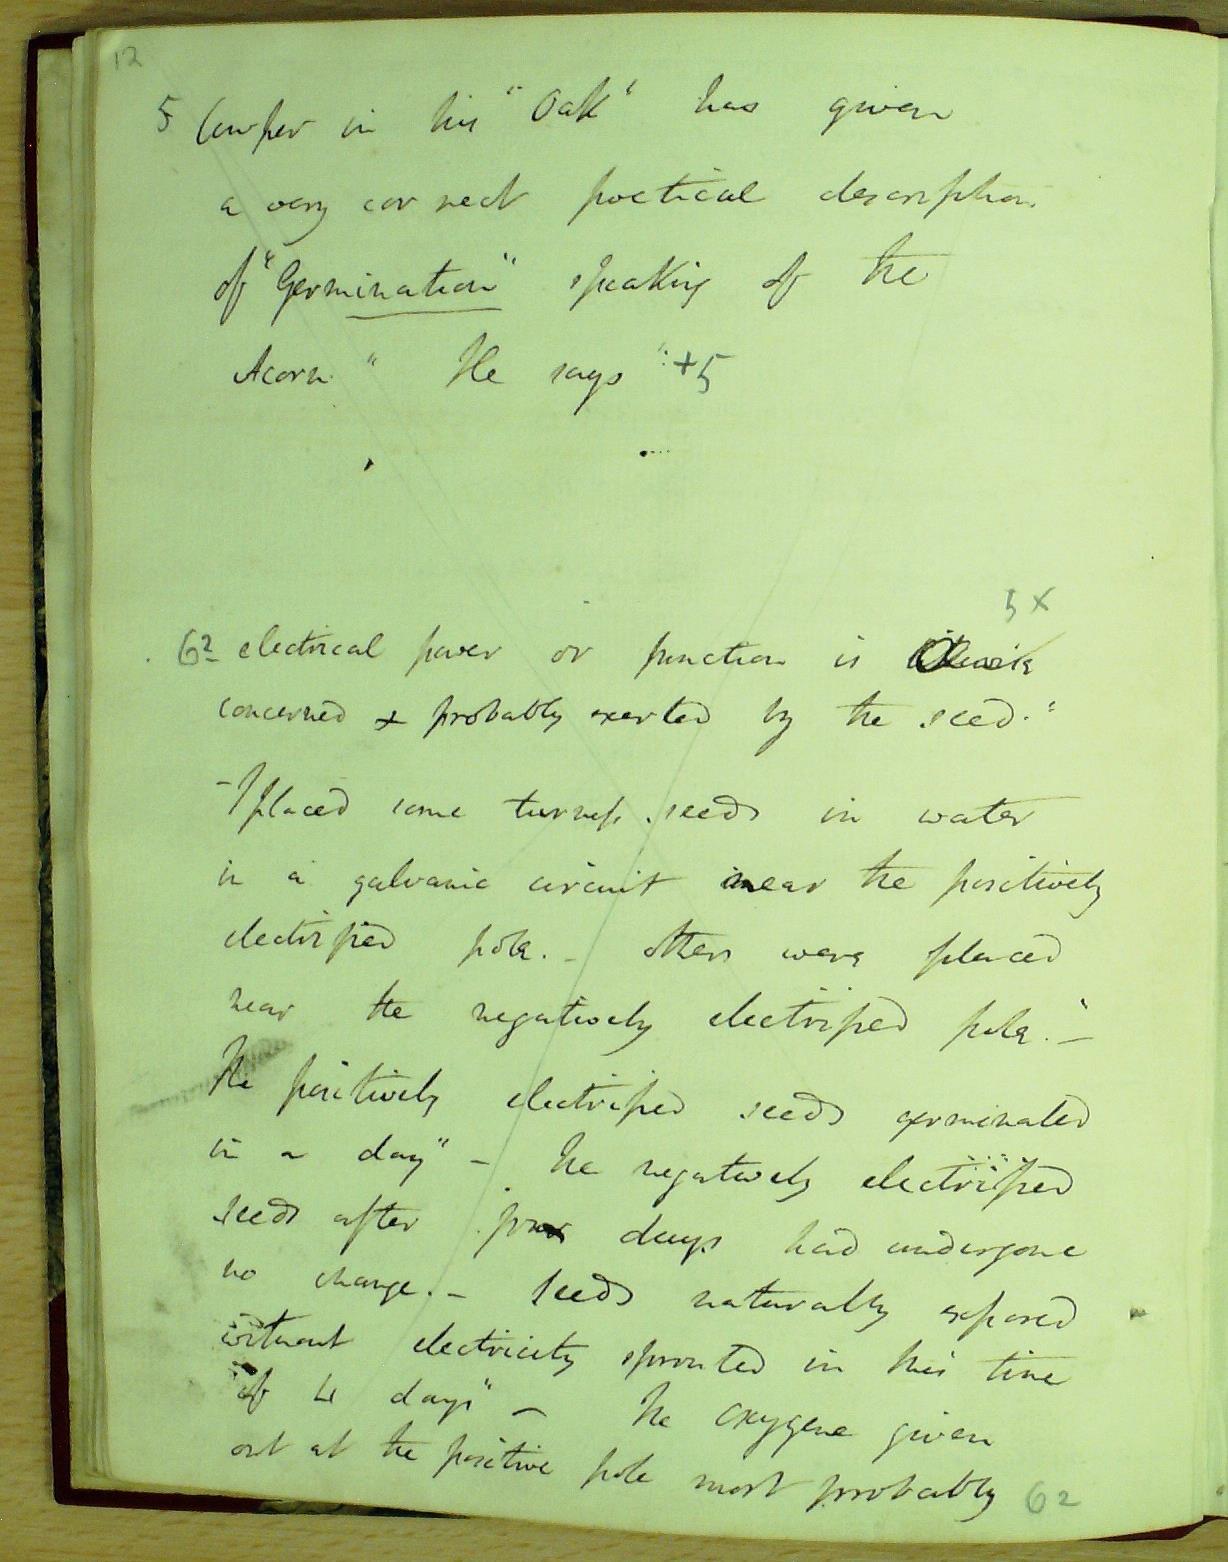 12
5 Cowper in his "Oak" has given
a very correct poetical description
of "Germination" speaking of the
Acorn" He says ":+5
5 X
62 electrical power or function is
concerned + probably exerted by the seed."
- I placed some turnip seeds in water
in a galvanic circuit near the positively
electrified pole. - others were placed
near the negatively electrified pole." -
The positively electrified seeds germinated
in a day" - the negatively electrified
seeds after four days had undergone
no change. - Seeds naturally exposed
without electricity sprouted in this time
of 4 days" - The oxygene given
out at the positive pole most probably 62